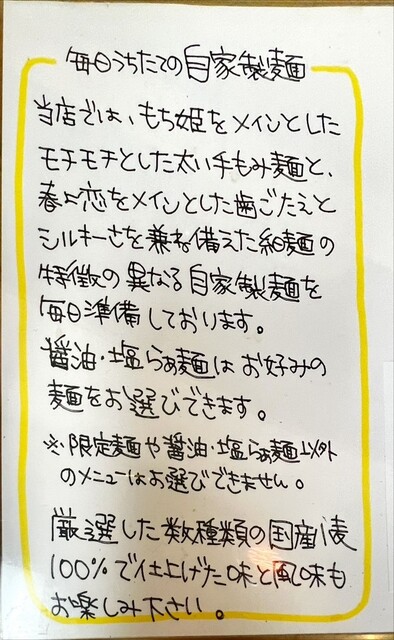 毎日うちたての自家製麺
当店では、もち姫をメインとした
モチモチとした太い手もみ麺と、
春よ恋をメインとした歯ごたえと
シルキーさを兼ね備えた細麺の
特徴の異なる自家製麺を
毎日準備しております。
醤油・塩らぁ麺はお好みの
麺をお選びできます。
※限定麺や醤油・塩らぁ麺以外
のメニューはお選びできません。
厳選した数種類の国産小麦
100%で仕上げた味と風味も
お楽しみ下さい。